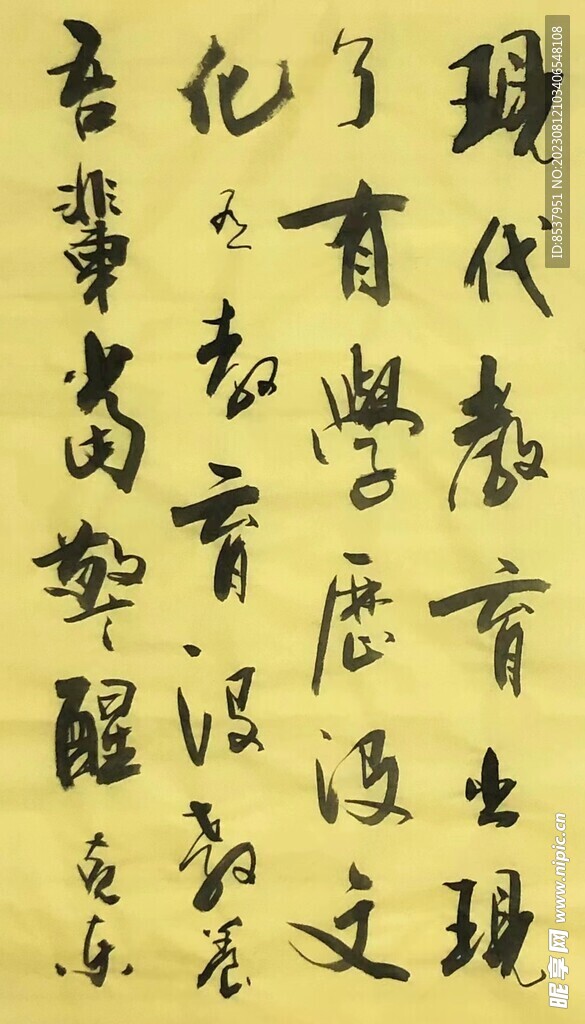 現代教育出現
了有學歷没文
化有教育没教養
吾輩當警醒
ID:8537951 NO:20230812103406548108
昵享网 www.nipic.cn